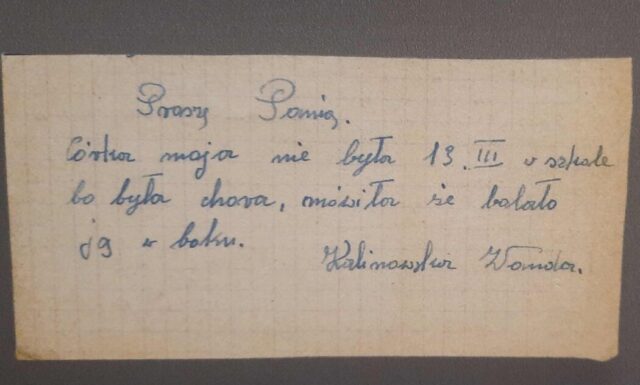 Proszę Panią.
Córka moja nie była 13. III w szkole
bo była chora, mówiła że bolało
ją w boku.
Kalinowska Wanda.